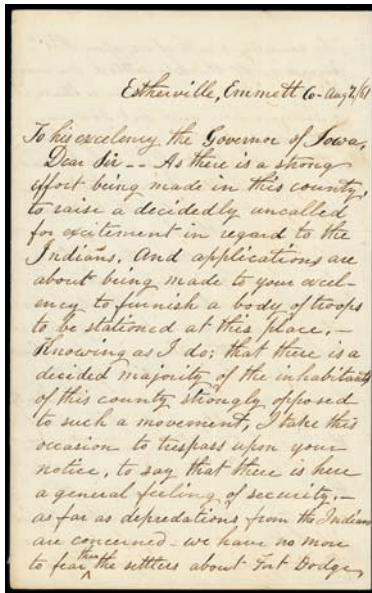 Estherville, Emmett Co - Aug 2/61
To his excelency the Governor of Iowa,
Dear Sir -- As there is a strong
effort being made in this county,
to raise a decidedly uncalled
for excitement in regard to the
Indians. And applications are
about being made to your excel-
ency to furnish a body of troops
to be stationed at this place.-
Knowing as I do; that there is a
decided majority of the inhabitants
of this county strongly opposed
to such a movement, I take this
occasion to trespass upon your
notice, to say that there is here
a general feeling of security,-
as far as depredations from the Indians
are concerned - we have no more
to fear than the settlers about Fort Dodge,